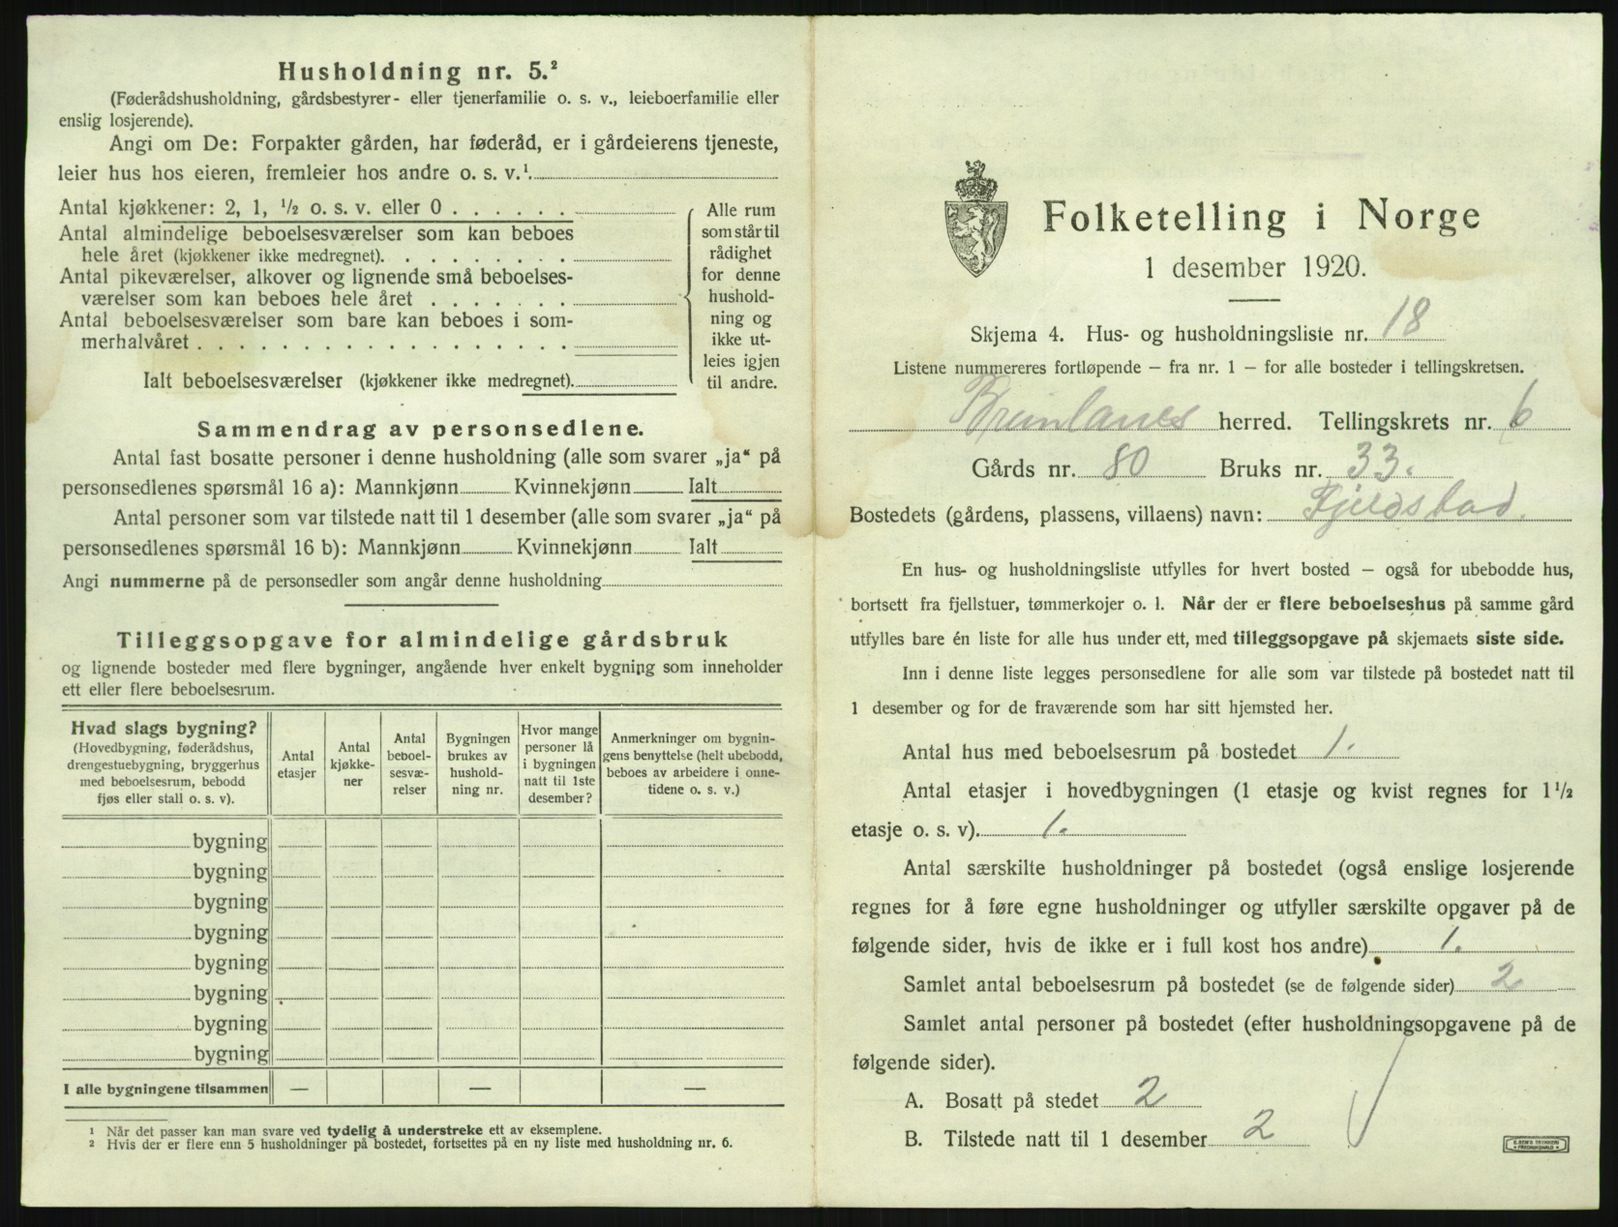 Husholdning nr. 5.²
(Føderådshusholdning, gårdsbestyrer- eller tjenerfamilie o. s. v., leieboerfamilie eller
enslig losjerende).
Angi om De: Forpakter gården, har føderåd, er i gårdeierens tjeneste,
leier hus hos eieren, fremleier hos andre o. s. v.¹.
Antal kjøkkener: 2, 1, ½ o. s. v. eller 0 . . . . . .
Antal almindelige beboelsesværelser som kan beboes
hele året (kjøkkener ikke medregnet). . . . . . . . .
Antal pikeværelser, alkover og lignende små beboelses-
værelser som kan beboes hele året . . . . . . .
Antal beboelsesværelser som bare kan beboes i som-
merhalvåret . . . . . . . . . . . . . . . . . .
Ialt beboelsesværelser (kjøkkener ikke medregnet).
Alle rum
som står til
rådighet
for denne
hushold-
ning og
ikke ut-
leies igjen
til andre.
Sammendrag av personsedlene.
Antal fast bosatte personer i denne husholdning (alle som svarer „ja“ på
personsedlenes spørsmål 16 a): Mannkjønn Kvinnekjønn Ialt
Antal personer som var tilstede natt til 1 desember (alle som svarer „ja“ på
personsedlenes spørsmål 16 b): Mannkjønn Kvinnekjønn Ialt
Angi nummerne på de personsedler som angår denne husholdning
Tilleggsopgave for almindelige gårdsbruk
og lignende bosteder med flere bygninger, angående hver enkelt bygning som inneholder
ett eller flere beboelsesrum.
Hvad slags bygning?
(Hovedbygning, føderådshus,
drengestuebygning, bryggerhus
med beboelsesrum, bebodd
fjøs eller stall o. s. v).
Antal
etasjer
Antal
kjøkke-
ner
Antal
beboel-
sesvæ-
relser
Bygningen
brukes av
hushold-
ning nr.
Hvor mange
personer lå
i bygningen
natt til 1ste
desember?
Anmerkninger om bygnin-
gens benyttelse (helt ubebodd,
beboes av arbeidere i onne-
tidene o. s. v.)
bygning
bygning
bygning
bygning
bygning
bygning
bygning
bygning
I alle bygningene tilsammen — — —
¹ Når det passer kan man svare ved tydelig å understreke ett av eksemplene.
² Hvis der er flere enn 5 husholdninger på bostedet, fortsettes på en ny liste med husholdning nr. 6.
Folketelling i Norge
1 desember 1920.
Skjema 4. Hus- og husholdningsliste nr. 18
Listene nummereres fortløpende — fra nr. 1 — for alle bosteder i tellingskretsen.
Brunlanes herred. Tellingskrets nr. 6
Gårds nr. 80 Bruks nr. 33.
Bostedets (gårdens, plassens, villaens) navn: Fjeldstad.
En hus- og husholdningsliste utfylles for hvert bosted — også for ubebodde hus,
bortsett fra fjellstuer, tømmerkojer o. l. Når der er flere beboelseshus på samme gård
utfylles bare én liste for alle hus under ett, med tilleggsopgave på skjemaets siste side.
Inn i denne liste legges personsedlene for alle som var tilstede på bostedet natt til
1 desember og for de fraværende som har sitt hjemsted her.
Antal hus med beboelsesrum på bostedet 1.
Antal etasjer i hovedbygningen (1 etasje og kvist regnes for 1½
etasje o. s. v). 1.
Antal særskilte husholdninger på bostedet (også enslige losjerende
regnes for å føre egne husholdninger og utfyller særskilte opgaver på de
følgende sider, hvis de ikke er i full kost hos andre) 1.
Samlet antal beboelsesrum på bostedet (se de følgende sider) 2
Samlet antal personer på bostedet (efter husholdningsopgavene på de
følgende sider).
A. Bosatt på stedet 2
B. Tilstede natt til 1 desember 2